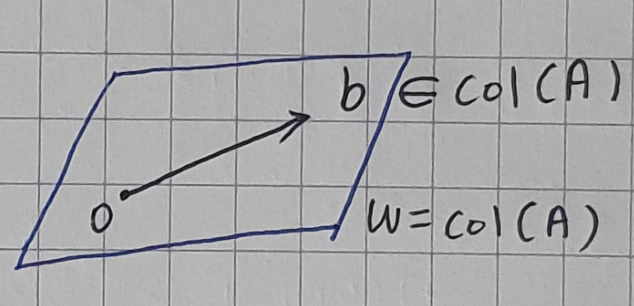 b ∈ Col(A)
0
W = Col(A)